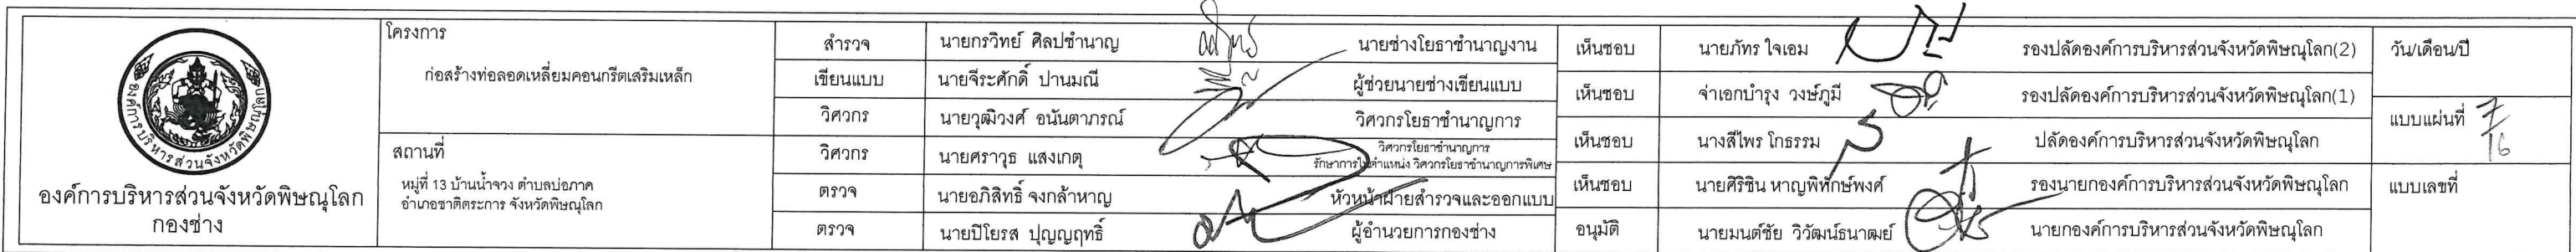 องค์การบริหารส่วนจังหวัดพิษณุโลก
องค์การบริหารส่วนจังหวัดพิษณุโลก
กองช่าง
โครงการ
ก่อสร้างท่อลอดเหลี่ยมคอนกรีตเสริมเหล็ก
สถานที่
หมู่ที่ 13 บ้านน้ำจวง ตำบลบ่อภาค
อำเภอชาติตระการ จังหวัดพิษณุโลก
สำรวจ นายกรวิทย์ ศิลปชำนาญ นายช่างโยธาชำนาญงาน
เขียนแบบ นายจีระศักดิ์ ปานมณี ผู้ช่วยนายช่างเขียนแบบ
วิศวกร นายวุฒิวงศ์ อนันตาภรณ์ วิศวกรโยธาชำนาญการ
วิศวกร นายศราวุธ แสงเกตุ วิศวกรโยธาชำนาญการ
รักษาการในตำแหน่ง วิศวกรโยธาชำนาญการพิเศษ
ตรวจ นายอภิสิทธิ์ จงกล้าหาญ หัวหน้าฝ่ายสำรวจและออกแบบ
ตรวจ นายปิโยรส ปุญญฤทธิ์ ผู้อำนวยการกองช่าง
เห็นชอบ นายภัทร ใจเอม รองปลัดองค์การบริหารส่วนจังหวัดพิษณุโลก(2)
เห็นชอบ จ่าเอกบำรุง วงษ์ภูมี รองปลัดองค์การบริหารส่วนจังหวัดพิษณุโลก(1)
เห็นชอบ นางสีไพร โกธรรม ปลัดองค์การบริหารส่วนจังหวัดพิษณุโลก
เห็นชอบ นายศิริชิน หาญพิทักษ์พงศ์ รองนายกองค์การบริหารส่วนจังหวัดพิษณุโลก
อนุมัติ นายมนต์ชัย วิวัฒน์ธนาฒย์ นายกองค์การบริหารส่วนจังหวัดพิษณุโลก
วัน/เดือน/ปี
แบบแผ่นที่ 7/16
แบบเลขที่